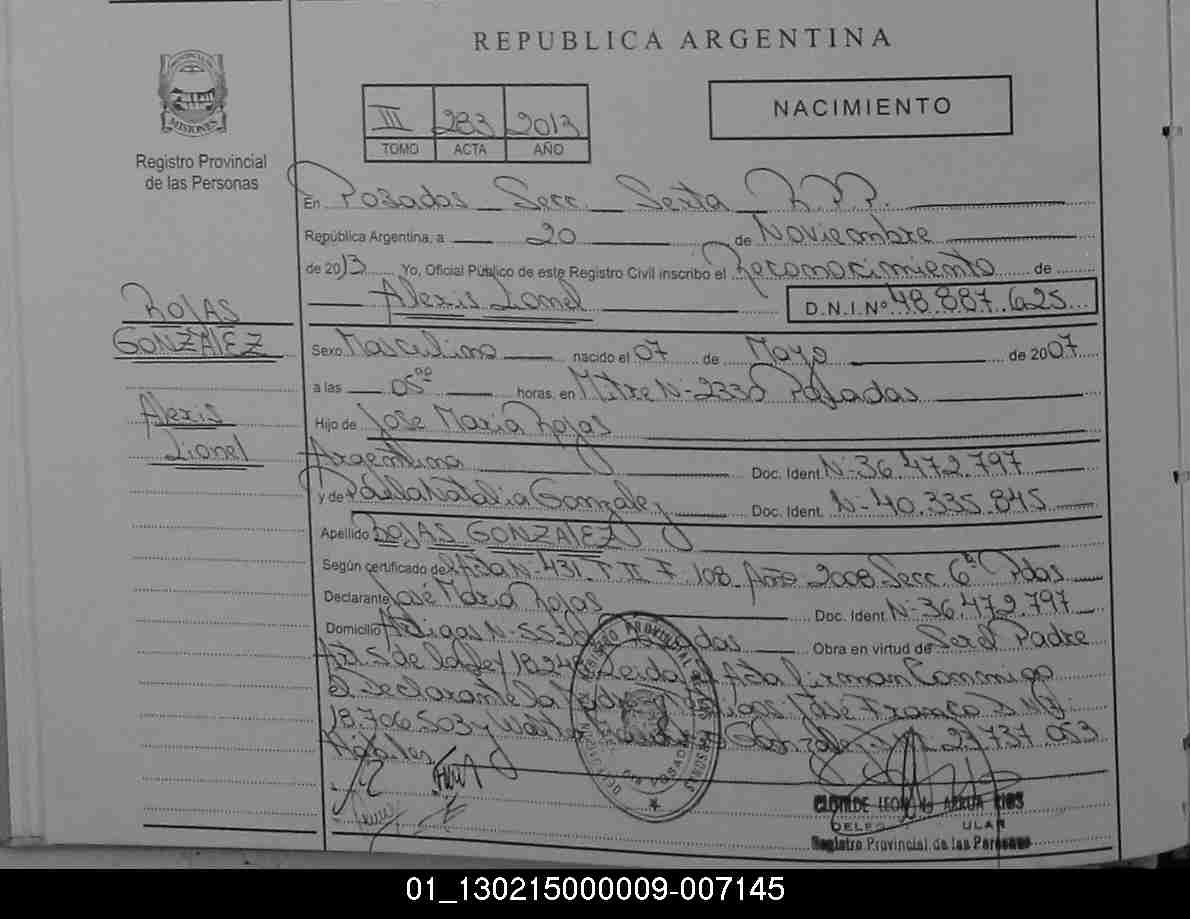 REPUBLICA ARGENTINA
MISIONES
Registro Provincial
de las Personas
III 283 2013
TOMO ACTA AÑO
NACIMIENTO
ROJAS
GONZALEZ
Alexis
Lionel
En Posadas Secc. Sexta R.P.P.
República Argentina, a 20 de Noviembre
de 2013 Yo, Oficial Público de este Registro Civil inscribo el Reconocimiento de
Alexis Lionel D.N.I.Nº 48.887.625
Sexo Masculino nacido el 07 de Mayo de 2007
a las 05⁰⁰ horas, en Mitre N-2330 Posadas
Hijo de Jose Maria Rojas
Argentina Doc. Ident. N-36.472.797
y de Paula Natalia Gonzalez Doc. Ident. N-40.335.845
Apellido ROJAS GONZALEZ
Según certificado de Acta N-431-T II F 108-Año 2008 Secc 6ª Pdas
Declarante José Maria Rojas Doc. Ident. N-36.472.797
Domicilio Artigas N-5530 Posadas Obra en virtud de Ser el Padre
Art. 5 de la Ley 18248 Leida el Acta firman Conmigo
el Declarante la Jose Franco D.N.I.
18.706.503 y Walter Gonzalez 23.737.053
CLOTILDE LEONA ARRUA RIOS
Registro Provincial de las Personas
01_130215000009-007145